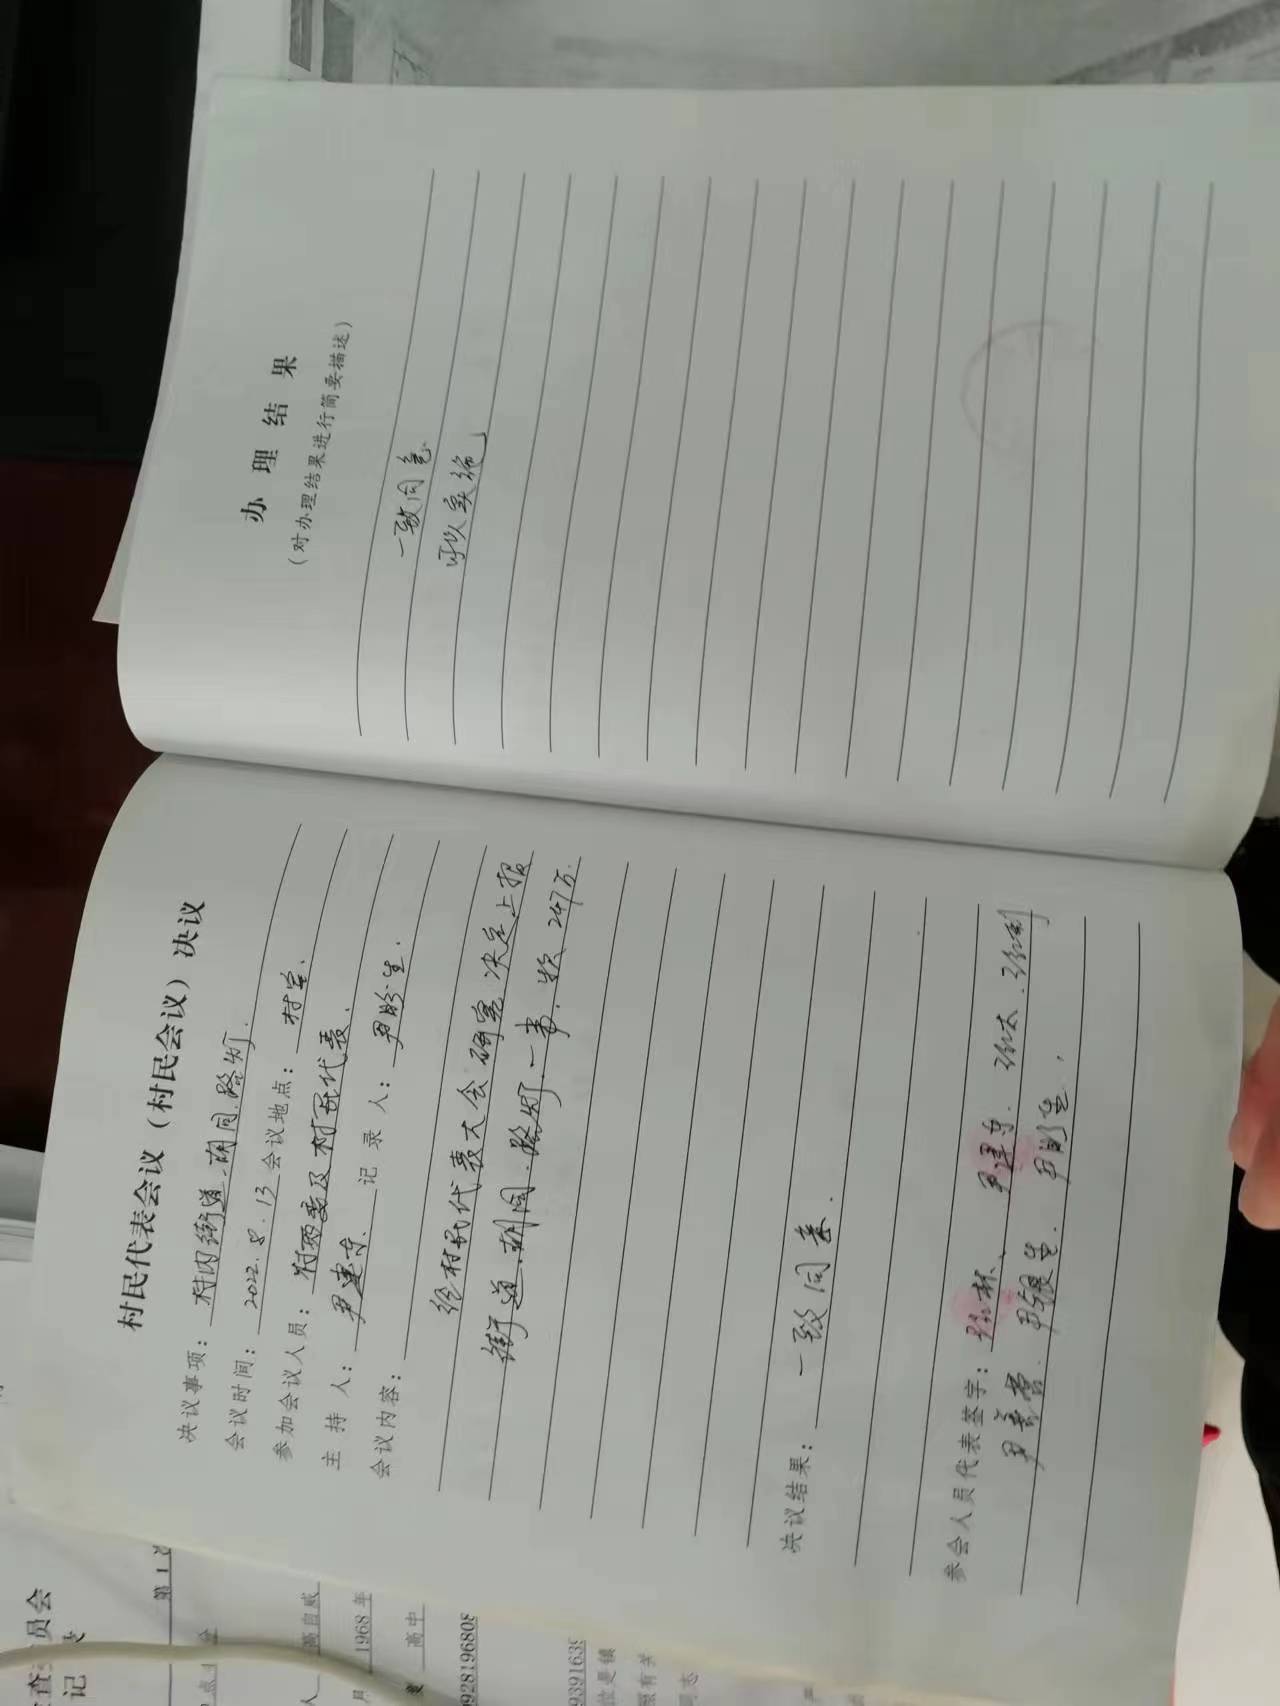 村民代表会议（村民会议）决议
决议事项：村内街道、胡同、路灯.
会议时间：2022.8.13 会议地点：村室.
参加会议人员：村两委及村民代表.
主 持 人：尹建东. 记 录 人：尹盼生.
会议内容：
经村民代表大会研究决定上报
街道、胡同、路灯一事. 款 247万.
决议结果：一致同意.
参会人员代表签字： 尹建东.
尹盼生.
办理结果
（对办理结果进行简要描述）
一致同意
可以实施
员会
记
第1
高自威
1968年
高中
0928196808
939163
位是镇
有关
同志